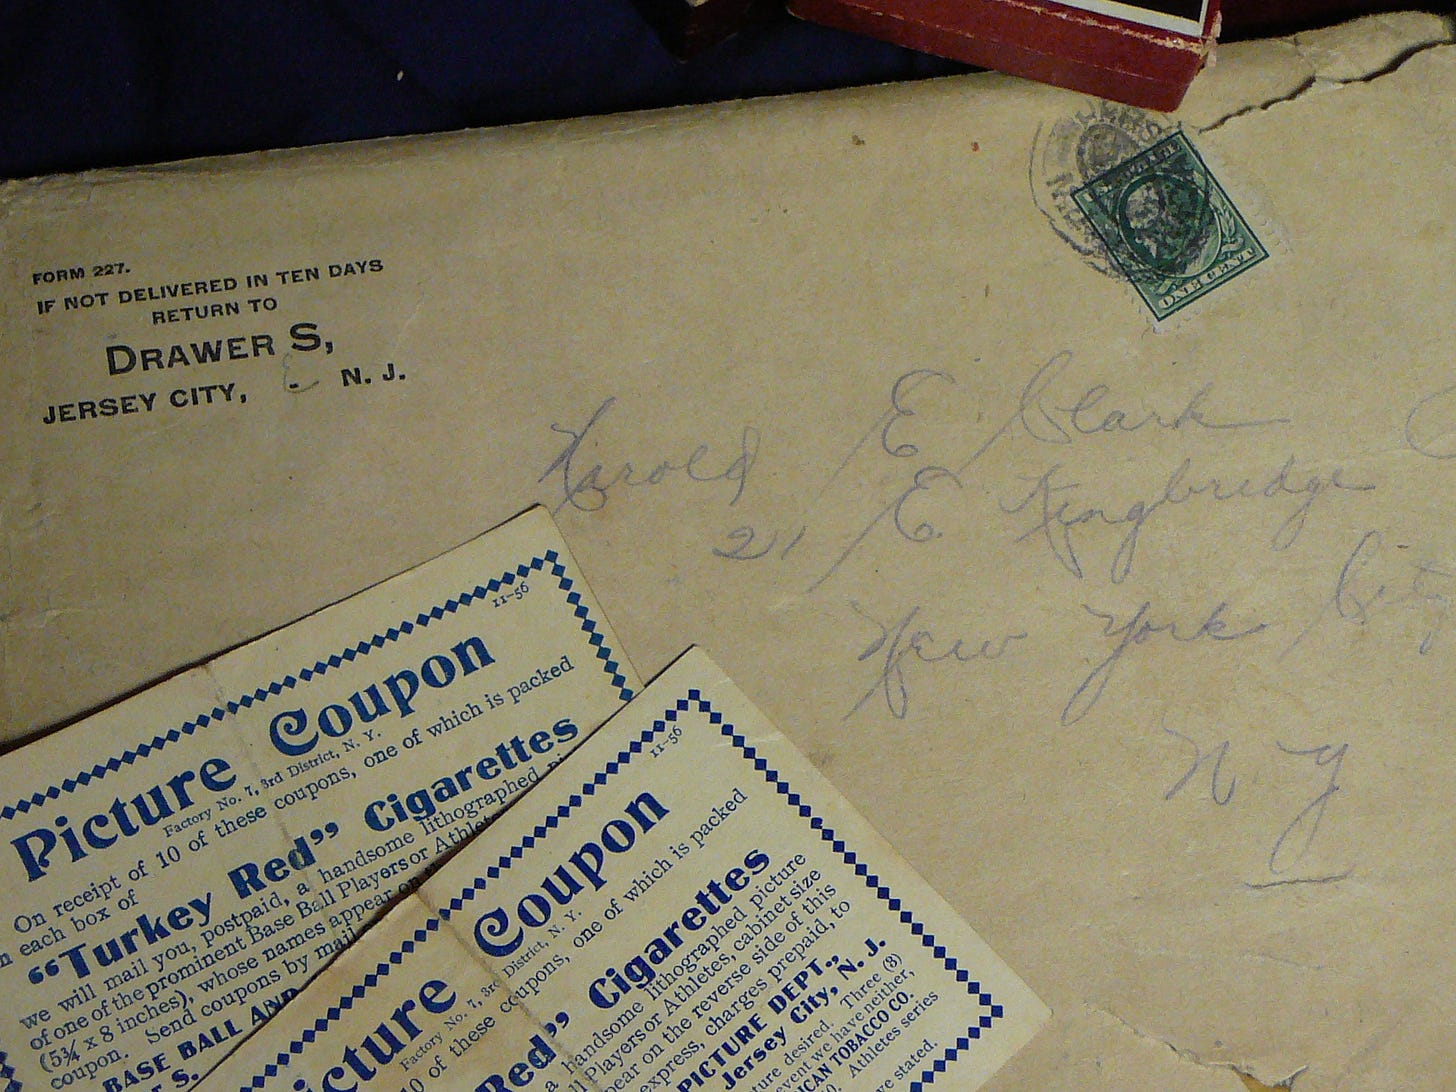 FORM 227.
IF NOT DELIVERED IN TEN DAYS
RETURN TO
DRAWER S,
JERSEY CITY, N. J.
ONE CENT
Harold E. Clark
21 E. Kingbridge
New York City
N. Y.
11-56
Picture Coupon
Factory No. 7, 3rd District, N. Y.
On receipt of 10 of these coupons, one of which is packed
in each box of
"Turkey Red" Cigarettes
we will mail you, postpaid, a handsome lithographed
of one of the prominent Base Ball Players or
(5¾ x 8 inches), whose names appear on
coupon. Send coupons by mail
BASE BALL AND
S.
11-56
Picture Coupon
Factory No. 7, 3rd District, N. Y.
10 of these coupons, one of which is packed
Red" Cigarettes
a handsome lithographed picture
Players or Athletes, cabinet size
appear on the reverse side of this
express, charges prepaid, to
PICTURE DEPT.,
Jersey City, N. J.
desired. Three (3)
event we have neither,
AMERICAN TOBACCO CO.
Athletes series
stated.